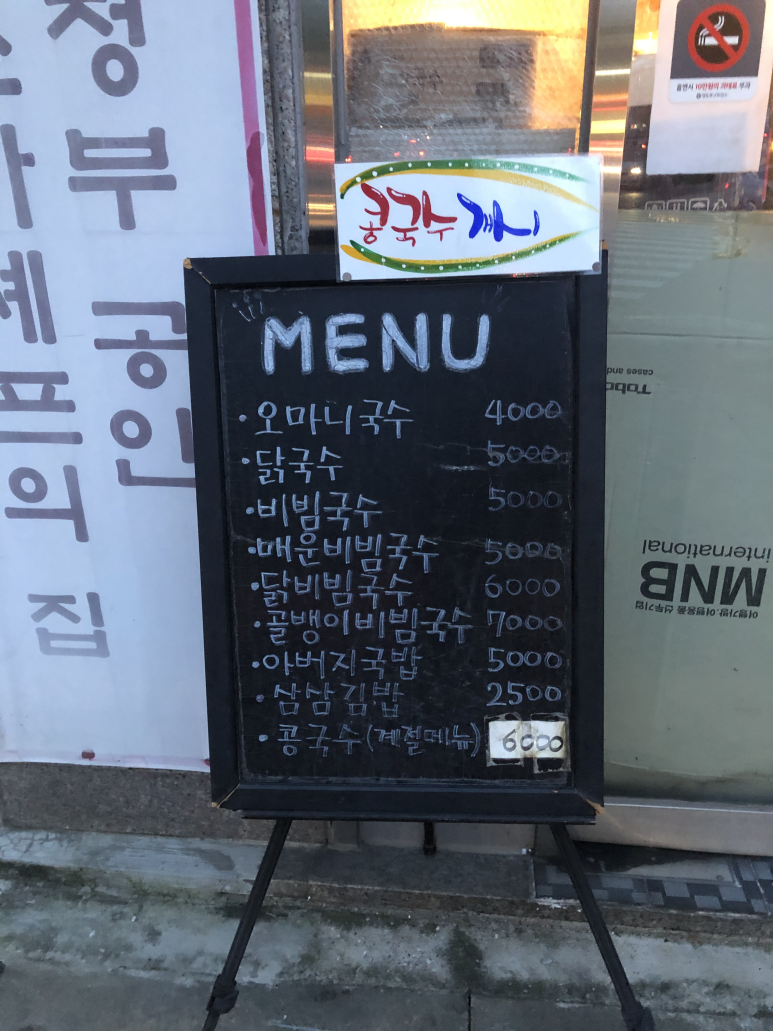 정부 공인
의 집
흡연시 10만원의 과태료 부과
콩국수 개시
MENU
·오마니국수 4000
·닭국수 5000
·비빔국수 5000
·매운비빔국수 5000
·닭비빔국수 6000
·골뱅이비빔국수 7000
·아버지국밥 5000
·삼삼김밥 2500
·콩국수(계절메뉴) 6000
cases and
MNB
international
여행가방.여행용품 선두기업